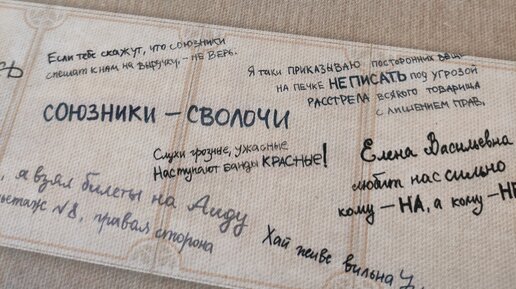 Если тебе скажут, что союзники
спешат к нам на выручку, – не верь.
СОЮЗНИКИ – СВОЛОЧИ
Я таки ПРИКАЗЫВАЮ посторонних вещ
на печке НЕ ПИСАТЬ под угрозой
РАССТРЕЛА ВСЯКОГО товарища
с лишением прав,
Слухи грозные, ужасные
Наступают банды КРАСНЫЕ!
Елена Васильевна
любит нас сильно
кому – НА, а кому – НЕ
, я взял билеты на Аиду
№8, правая сторона
Хай живе вильна У